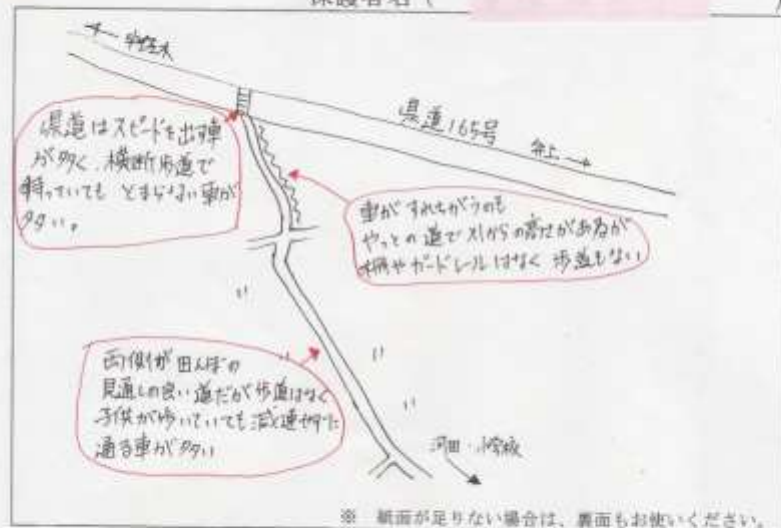 保護者名（
県道165号
県道はスピードを出す車
が多く、横断歩道で
待っていても とまらない車が
多い。
車がすれちがうのも
やっとの道で 川からの高さがあるが
柵やガードレールはなく 歩道もない
両側が田んぼの
見通しの良い道だが歩道はなく
子供が歩いていても減速せずに
通る車が多い
河田・小学校
※ 紙面が足りない場合は、裏面もお使いください。